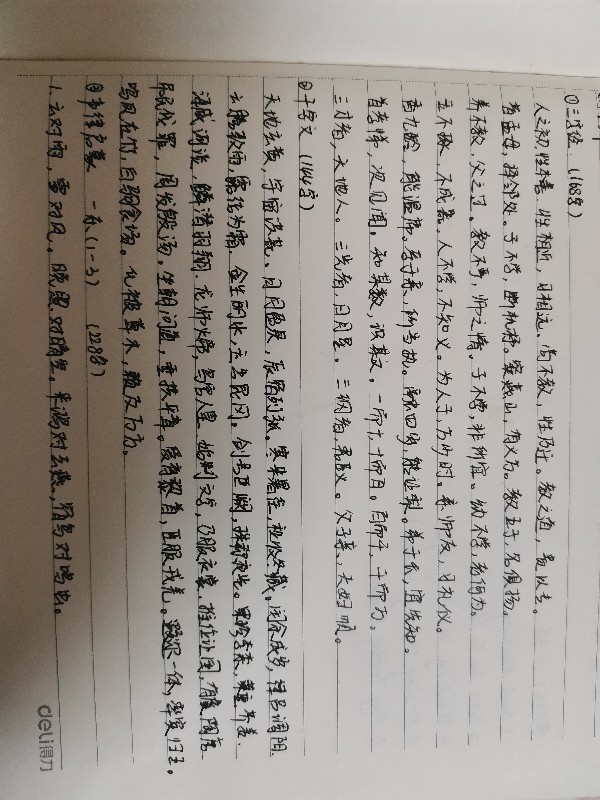 ①三字经 (168字)
人之初,性本善。性相近,习相远。苟不教,性乃迁。教之道,贵以专。
昔孟母,择邻处。子不学,断机杼。窦燕山,有义方。教五子,名俱扬。
养不教,父之过。教不严,师之惰。子不学,非所宜。幼不学,老何为。
玉不琢,不成器。人不学,不知义。为人子,方少时。亲师友,习礼仪。
香九龄,能温席。孝于亲,所当执。融四岁,能让梨。弟于长,宜先知。
首孝悌,次见闻。知某数,识某文。一而十,十而百。百而千,千而万。
三才者,天地人。三光者,日月星。三纲者,君臣义。父子亲,夫妇顺。
②千字文 (144字)
天地玄黄,宇宙洪荒。日月盈昃,辰宿列张。寒来暑往,秋收冬藏。闰余成岁,律吕调阳。
云腾致雨,露结为霜。金生丽水,玉出昆冈。剑号巨阙,珠称夜光。果珍李柰,菜重芥姜。
海咸河淡,鳞潜羽翔。龙师火帝,鸟官人皇。始制文字,乃服衣裳。推位让国,有虞陶唐。
吊民伐罪,周发殷汤。坐朝问道,垂拱平章。爱育黎首,臣服戎羌。遐迩一体,率宾归王。
鸣凤在竹,白驹食场。化被草木,赖及万方。
③声律启蒙 一东(1-3) (228字)
1. 云对雨,雪对风。晚照对晴空。来鸿对去燕,宿鸟对鸣虫。
deli得力